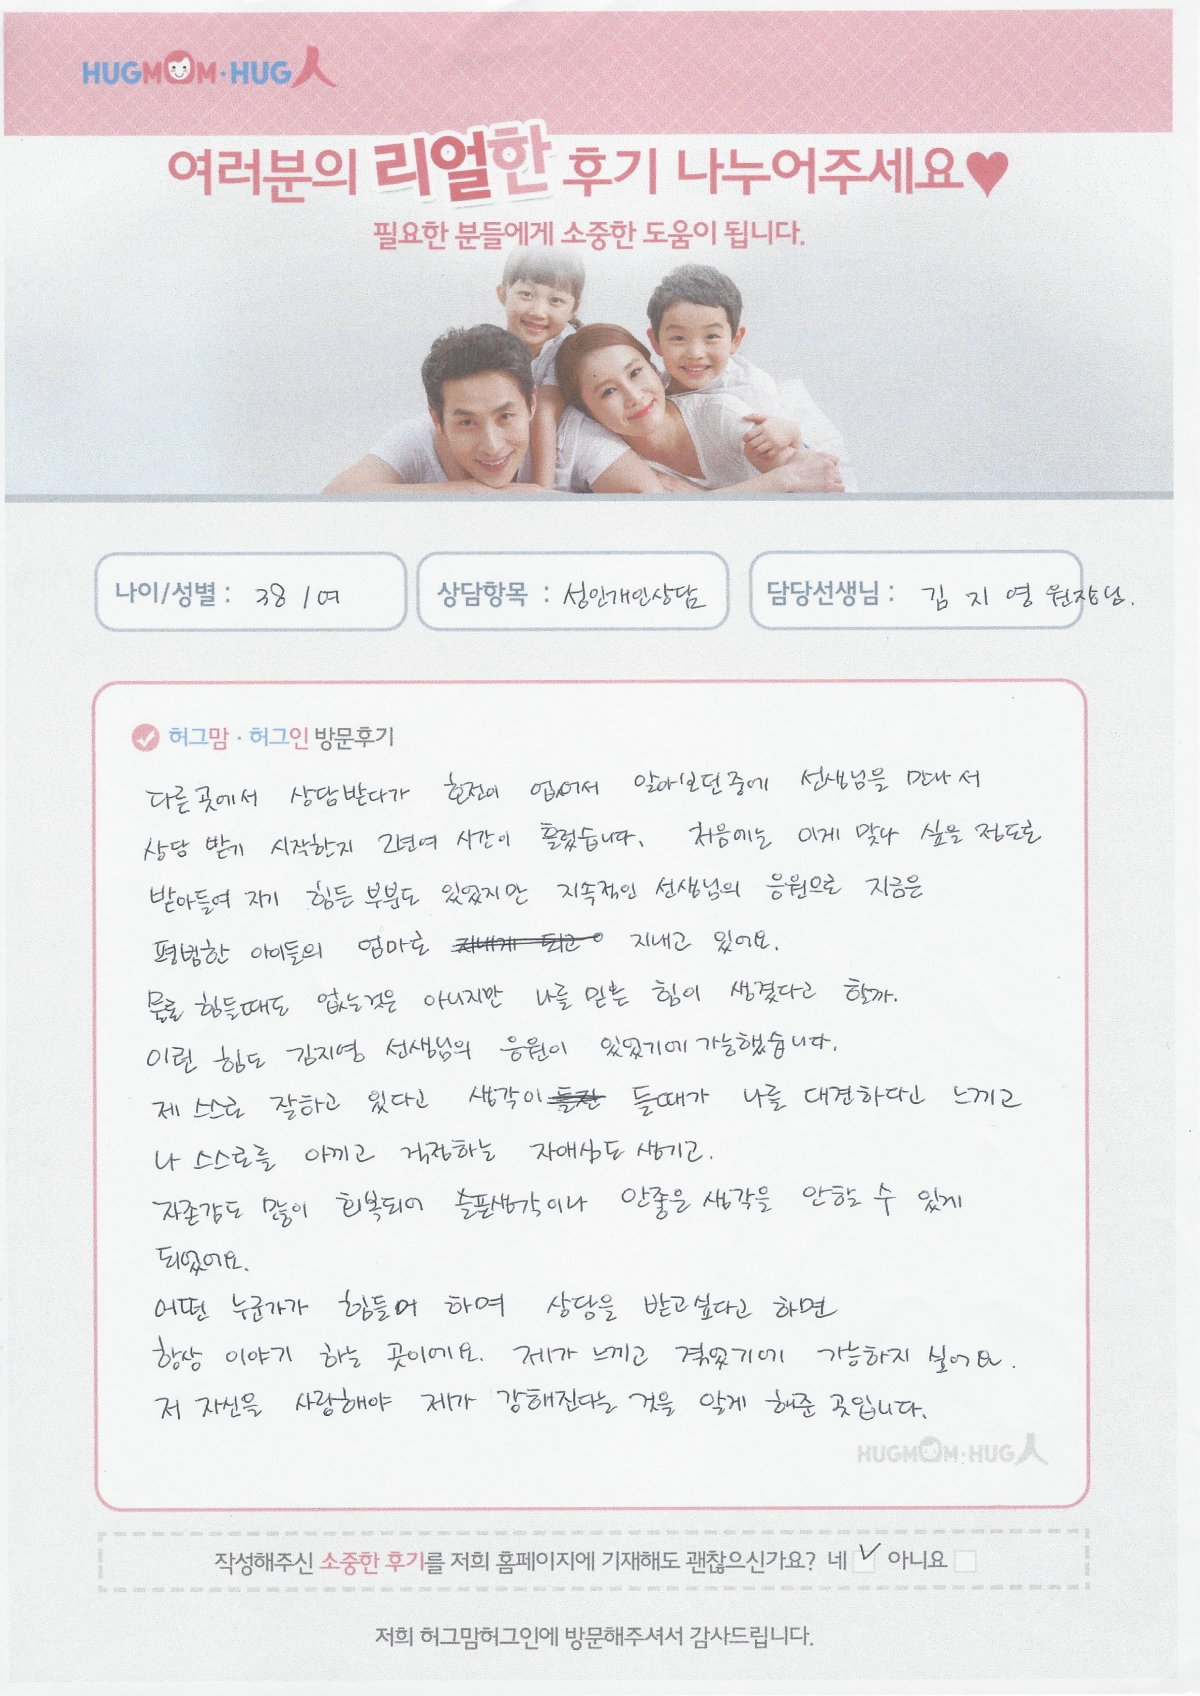 HUGMOM·HUG人
여러분의 리얼한 후기 나누어주세요♥
필요한 분들에게 소중한 도움이 됩니다.
나이/성별 : 38 / 여
상담항목 : 성인개인상담
담당선생님 : 김 지 영 원장님.
허그맘·허그인 방문후기
다른 곳에서 상담받다가 호전이 없어서 알아보던중에 선생님을 만나서
상담 받기 시작한지 2년여 시간이 흘렀습니다. 처음에는 이게 맞나 싶을 정도로
받아들여 지기 힘든 부분도 있었지만 지속적인 선생님의 응원으로 지금은
평범한 아이들의 엄마로 지내게 되고 지내고 있어요.
물론 힘들때도 없는것은 아니지만 나를 믿는 힘이 생겼다고 할까.
이런 힘도 김지영 선생님의 응원이 있었기에 가능했습니다.
제 스스로 잘하고 있다고 생각이 들때가 나를 대견하다고 느끼고
나 스스로를 아끼고 걱정하는 자애심도 생기고.
자존감도 많이 회복되어 슬픈생각이나 안좋은 생각을 안할 수 있게
되었어요.
어떤 누군가가 힘들어 하며 상담을 받고싶다고 하면
항상 이야기 하는 곳이에요. 제가 느끼고 겪었기에 가능하지 싶어요.
저 자신을 사랑해야 제가 강해진다는 것을 알게 해준 곳입니다.
HUGMOM·HUG人
작성해주신 소중한 후기를 저희 홈페이지에 기재해도 괜찮으신가요? 네 ✓ 아니요
저희 허그맘허그인에 방문해주셔서 감사드립니다.